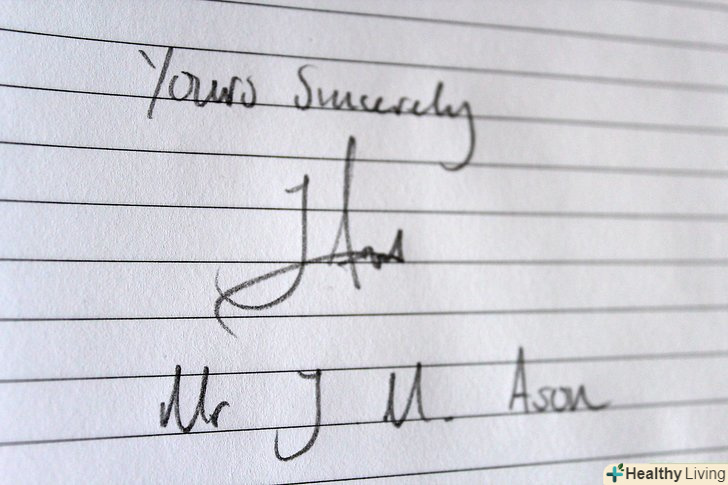 Yours Sincerely
J Ason
Mr J M. Ason
Healthy Living